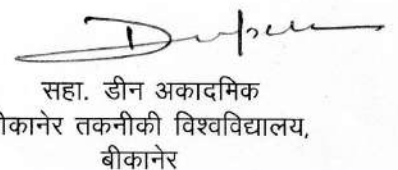 सहा. डीन अकादमिक
तकनीकी विश्वविद्यालय,
बीकानेर